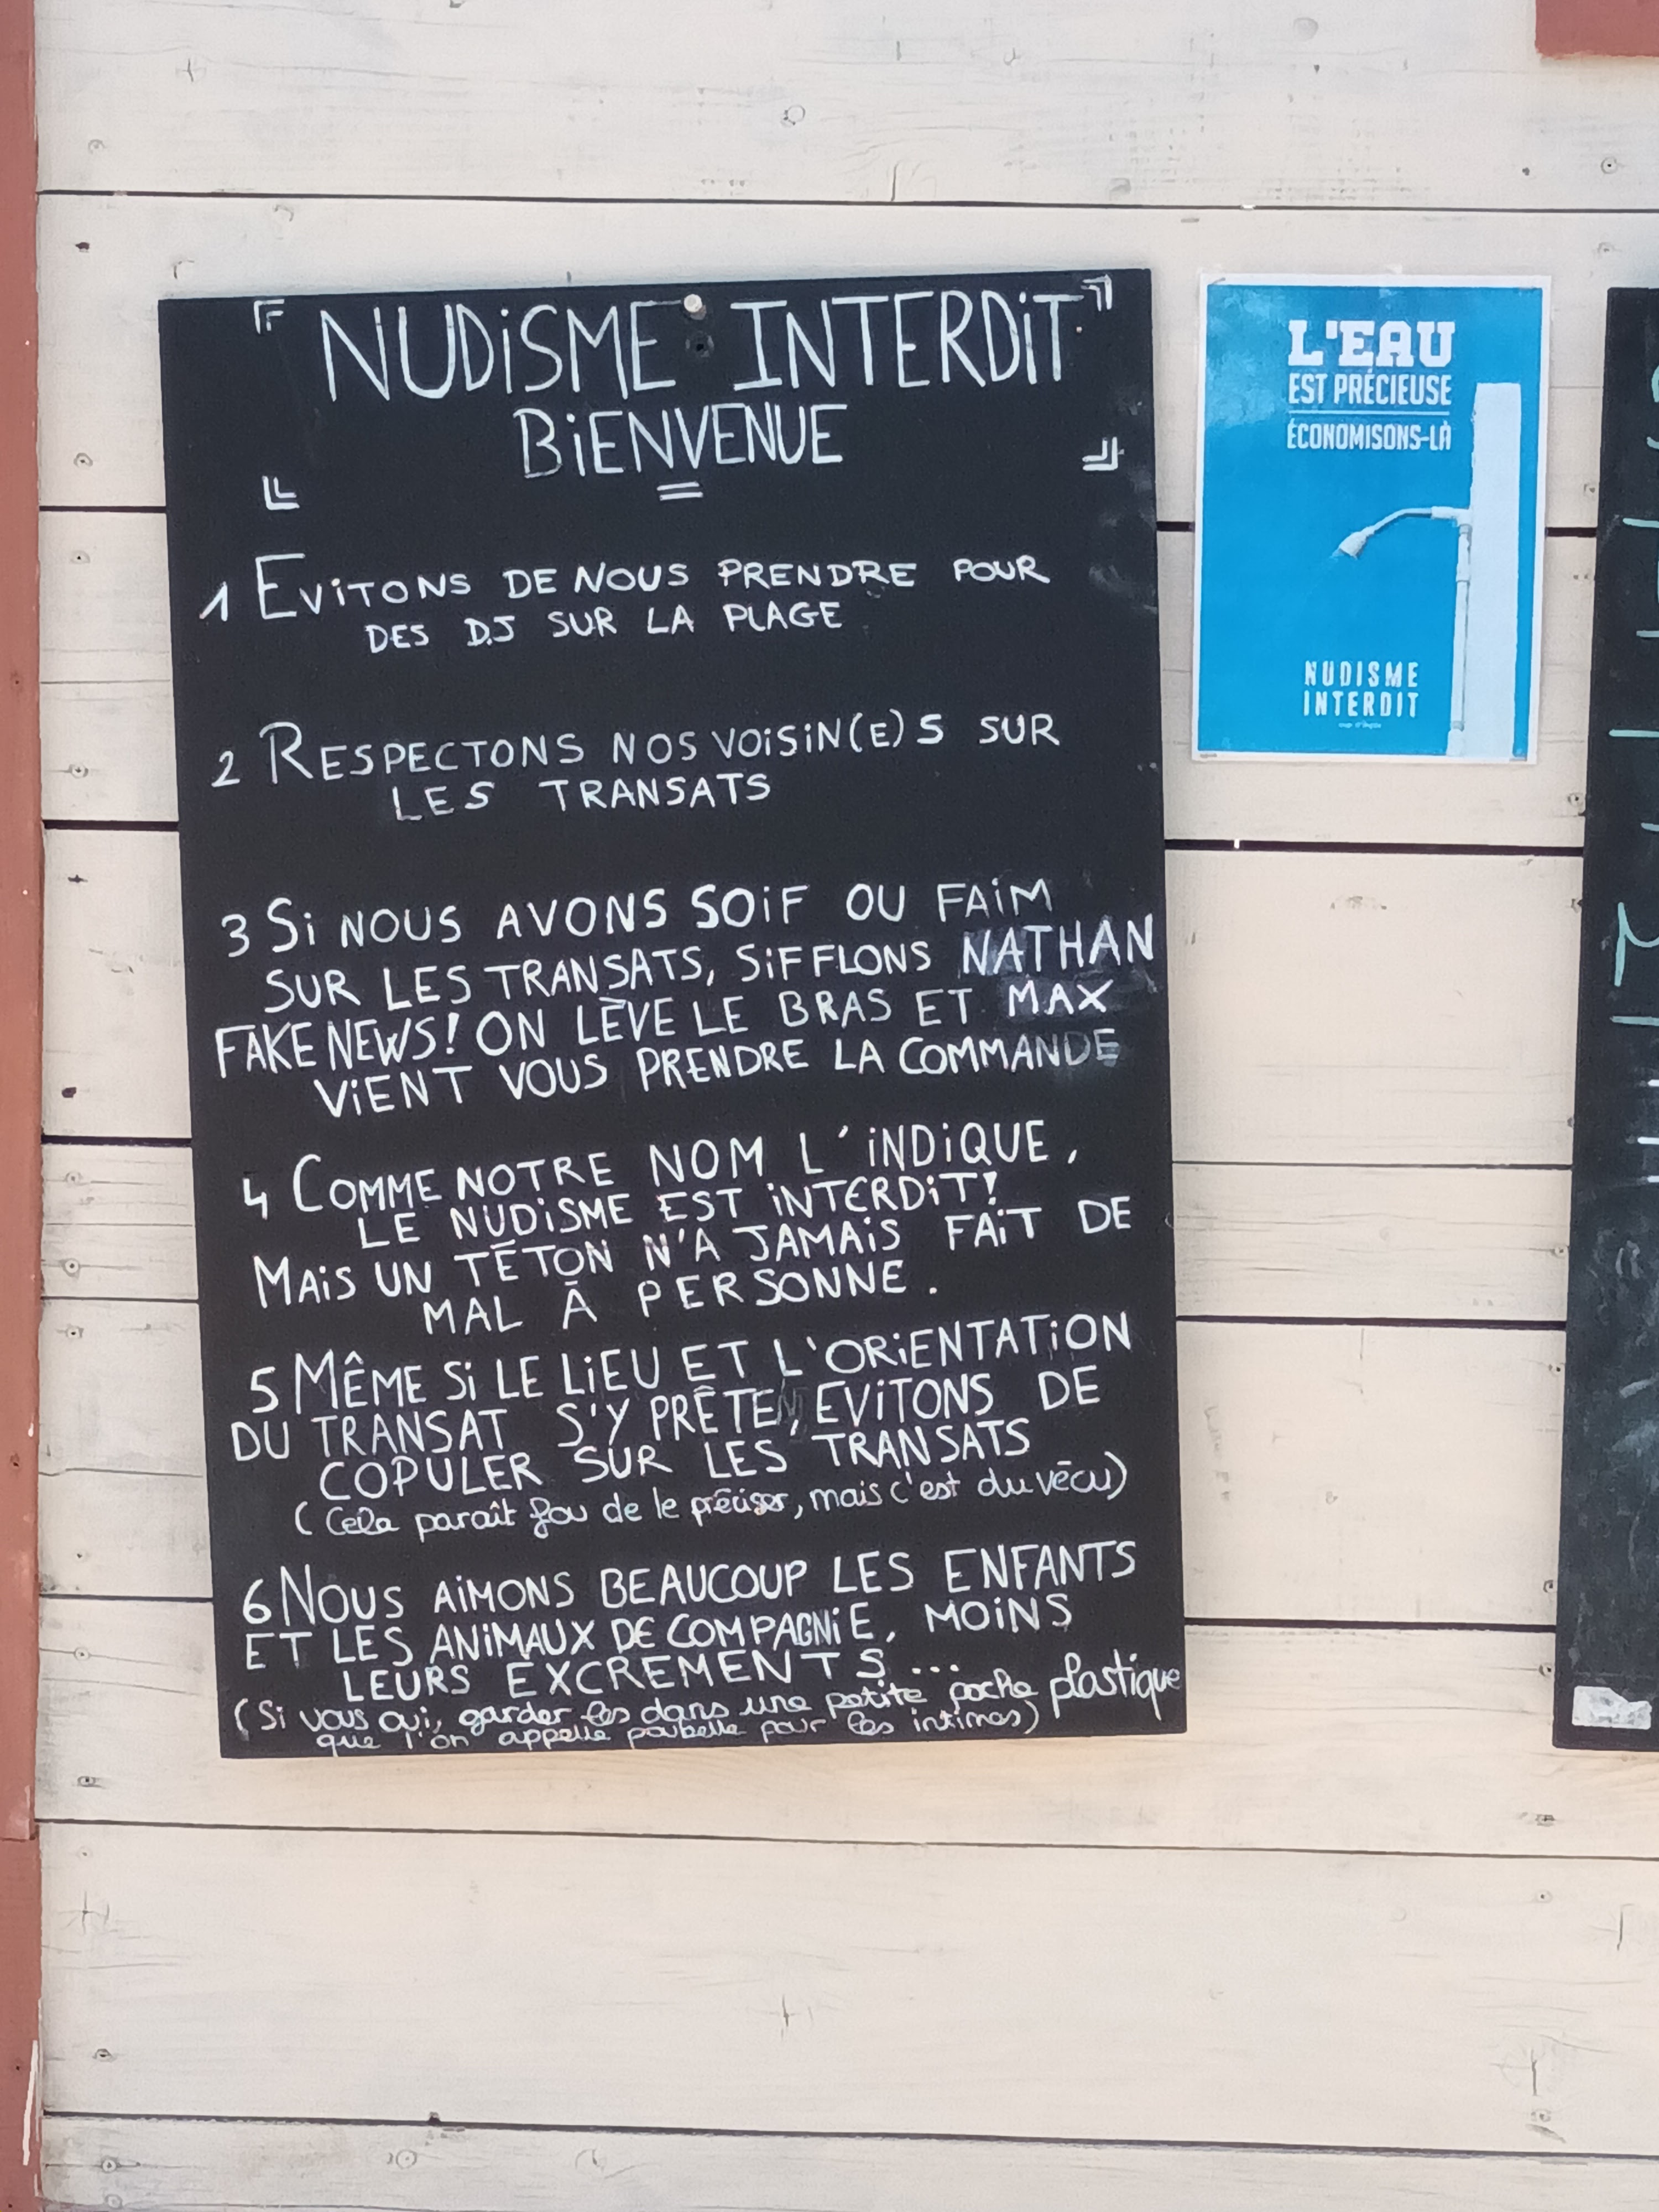 NUDiSME INTERDiT
BiENVENUE
1 EViTONS DE NOUS PRENDRE POUR
DES DJ SUR LA PLAGE
2 RESPECTONS NOS VOiSiN(E)S SUR
LES TRANSATS
3 Si NOUS AVONS SOiF OU FAiM
SUR LES TRANSATS, SiFFLONS NATHAN
FAKE NEWS! ON LÈVE LE BRAS ET MAX
ViENT VOUS PRENDRE LA COMMANDE
4 COMME NOTRE NOM L'iNDiQUE,
LE NUDiSME EST iNTERDiT!
MAiS UN TÉTON N'A JAMAiS FAiT DE
MAL À PERSONNE.
5 MÊME Si LE LiEU ET L'ORiENTATiON
DU TRANSAT S'Y PRÊTE, EViTONS DE
COPULER SUR LES TRANSATS
(Cela paraît fou de le préciser, mais c'est du vécu)
6 NOUS AiMONS BEAUCOUP LES ENFANTS
ET LES ANiMAUX DE COMPAGNiE, MOiNS
LEURS EXCREMENTS...
(Si vous oui, garder les dans une petite poche plastique
que l'on appelle poubelle pour les intimes)
L'EAU
EST PRÉCIEUSE
ÉCONOMISONS-LÀ
NUDISME
INTERDIT